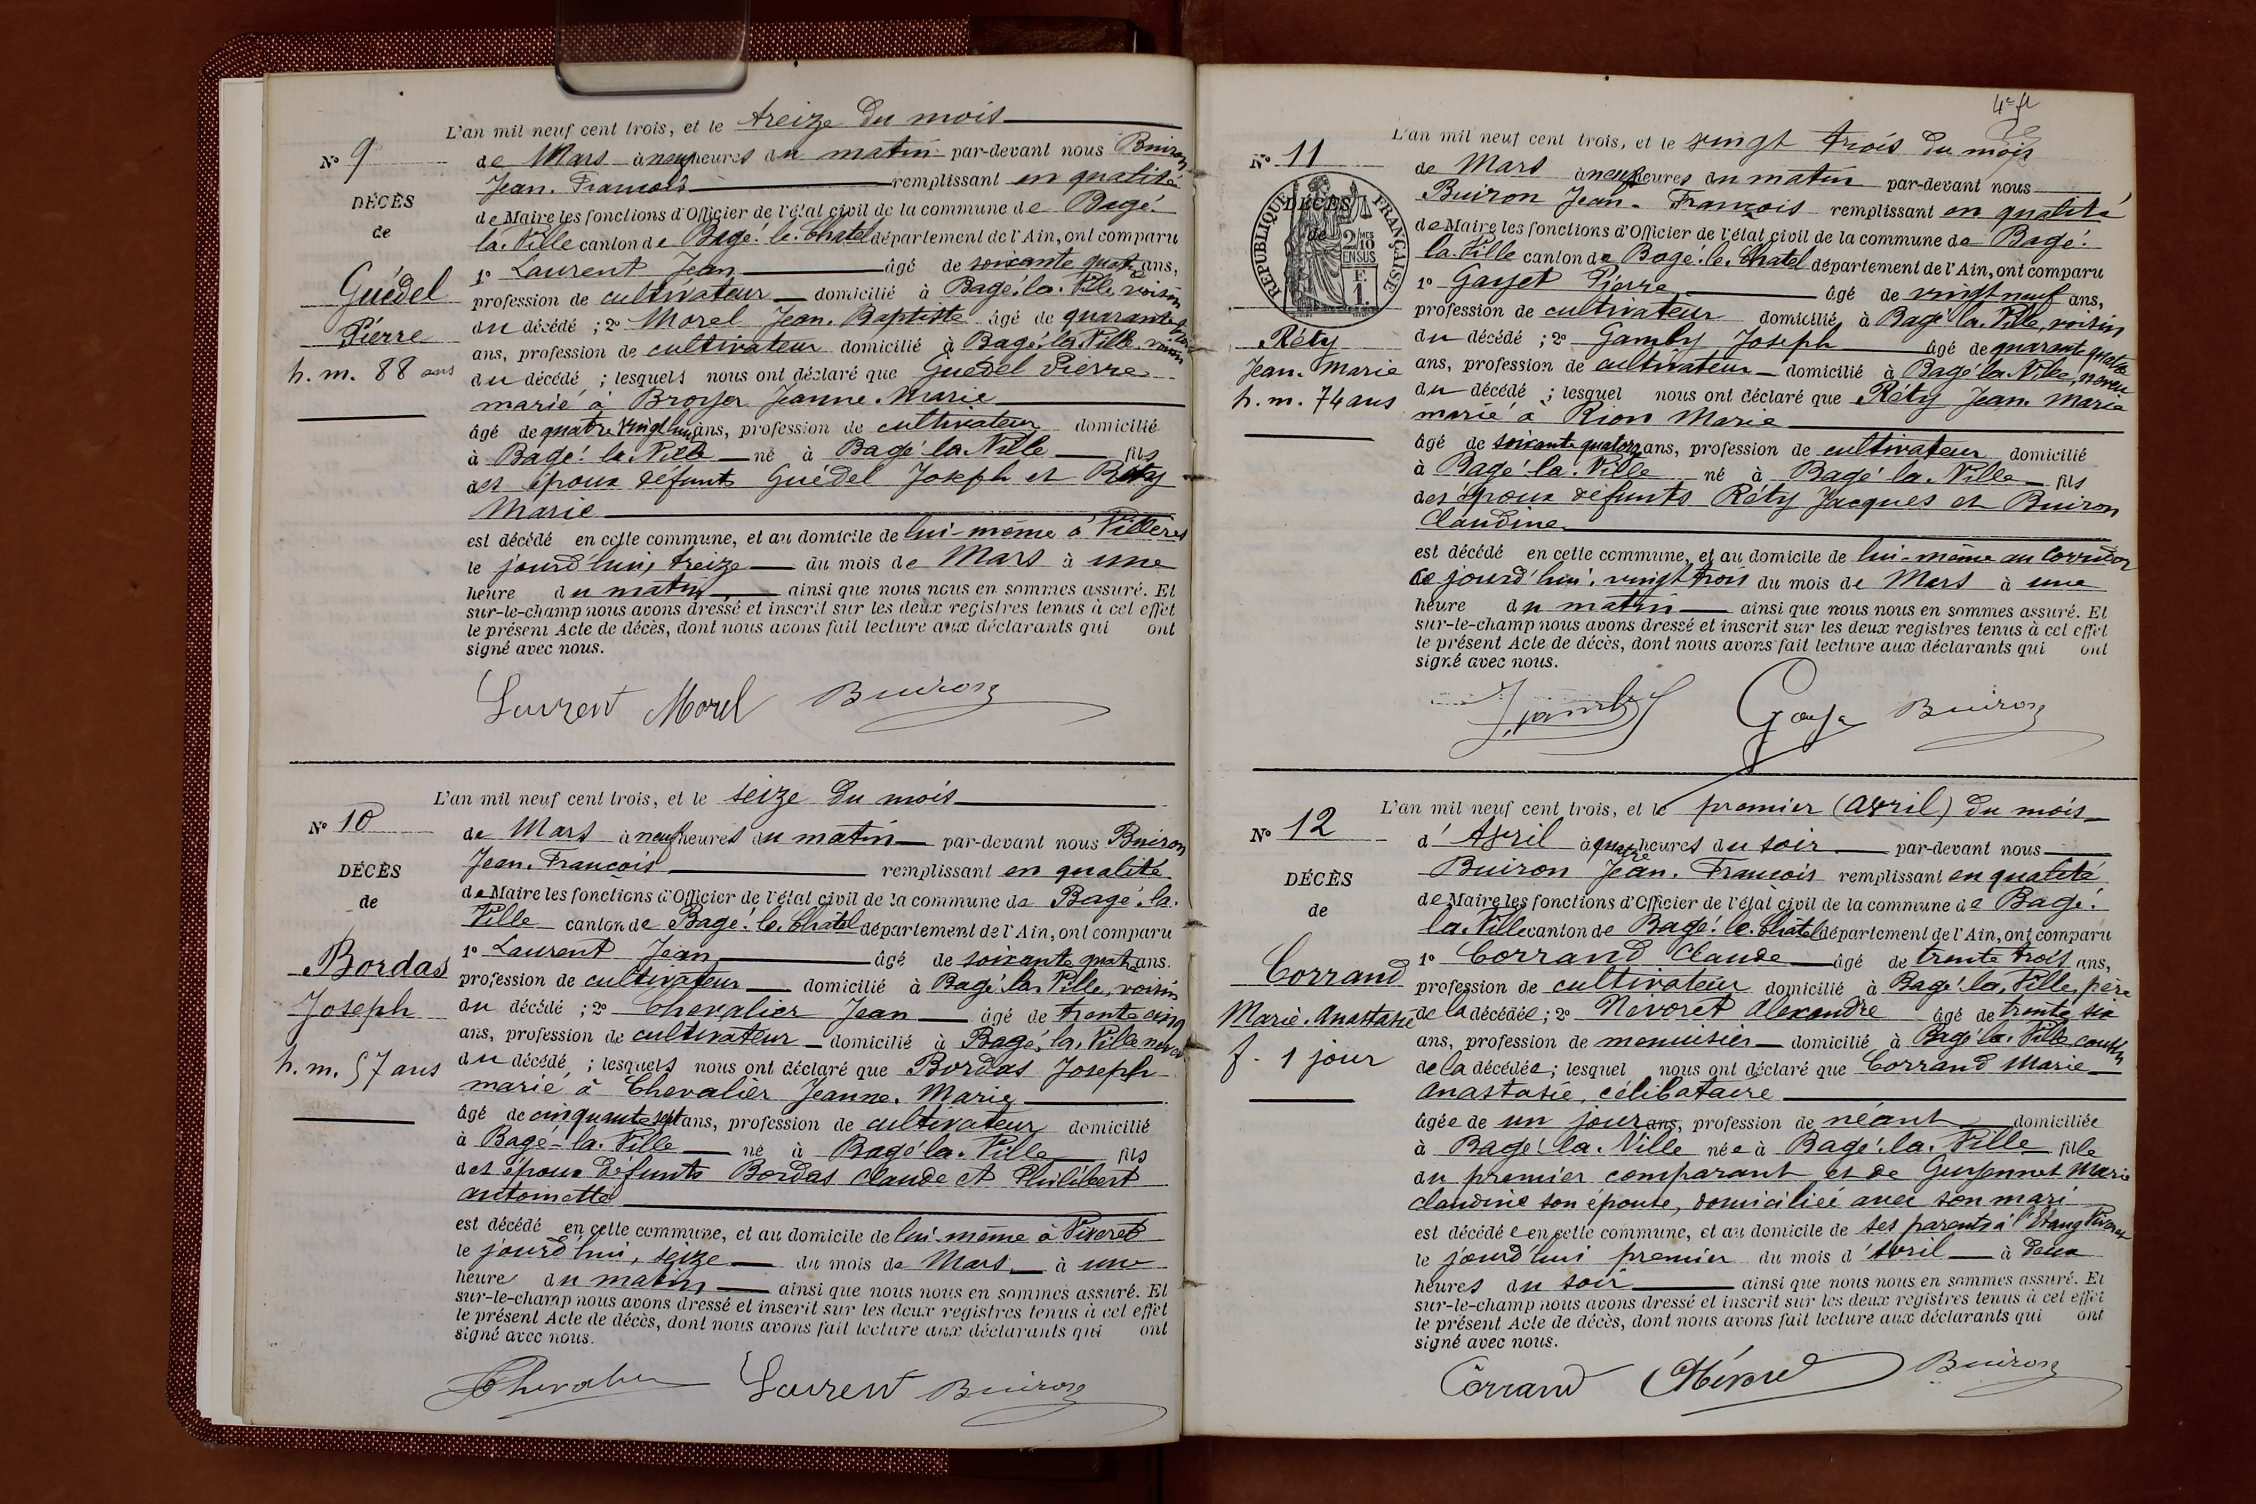 L'an mil neuf cent trois, et le treize du mois
N° 9
de Mars à neuf heures du matin par-devant nous Buiron
Jean-François remplissant en qualité
DÉCÈS
de Maire les fonctions d'Officier de l'état civil de la commune de Bagé-
de
la-Ville canton de Bagé-le-Chatel département de l'Ain, ont comparu
1° Laurent Jean âgé de soixante quatre ans,
Guédel
profession de cultivateur domicilié à Bagé-la-Ville, voisin
Pierre
du décédé ; 2° Morel Jean-Baptiste âgé de quarante
h. m. 88 ans
ans, profession de cultivateur domicilié à Bagé-la-Ville, voisin
du décédé ; lesquels nous ont déclaré que Guédel Pierre
marié à Broyer Jeanne-Marie
âgé de quatre vingt huit ans, profession de cultivateur domicilié
à Bagé-la-Ville né à Bagé-la-Ville fils
des époux défunts Guédel Joseph et Réty
Marie
est décédé en cette commune, et au domicile de lui-même à Villères
le jourd'hui, treize du mois de Mars à une
heure du matin ainsi que nous nous en sommes assuré. Et
sur-le-champ nous avons dressé et inscrit sur les deux registres tenus à cet effet
le présent Acte de décès, dont nous avons fait lecture aux déclarants qui ont
signé avec nous.
Laurent Morel Buiron
L'an mil neuf cent trois, et le seize du mois
N° 10
de Mars à neuf heures du matin par-devant nous Buiron
Jean-François remplissant en qualité
DÉCÈS
de Maire les fonctions d'Officier de l'état civil de la commune de Bagé-la-
de
Ville canton de Bagé-le-Chatel département de l'Ain, ont comparu
1° Laurent Jean âgé de soixante quatre ans.
Bordas
profession de cultivateur domicilié à Bagé-la-Ville, voisin
Joseph
du décédé ; 2° Chevalier Jean âgé de trente cinq
ans, profession de cultivateur domicilié à Bagé-la-Ville neveu
h. m. 57 ans
du décédé ; lesquels nous ont déclaré que Bordas Joseph
marié à Chevalier Jeanne-Marie
âgé de cinquante sept ans, profession de cultivateur domicilié
à Bagé-la-Ville né à Bagé-la-Ville fils
des époux défunts Bordas Claude et Philibert
antoinette
est décédé en cette commune, et au domicile de lui-même à Viveret
le jourd'hui, seize du mois de Mars à une
heure du matin ainsi que nous nous en sommes assuré. Et
sur-le-champ nous avons dressé et inscrit sur les deux registres tenus à cet effet
le présent Acte de décès, dont nous avons fait lecture aux déclarants qui ont
signé avec nous.
Chevalier Laurent Buiron
L'an mil neuf cent trois, et le vingt trois du mois
N° 11
de Mars à neuf heures du matin par-devant nous
Buiron Jean-François remplissant en qualité
DÉCÈS
de
RÉPUBLIQUE FRANÇAISE
2/10 MES EN SUS
F 1.
de Maire les fonctions d'Officier de l'état civil de la commune de Bagé-
la-Ville canton de Bagé-le-Chatel département de l'Ain, ont comparu
1° Gayet Pierre âgé de vingt neuf ans,
profession de cultivateur domicilié à Bagé-la-Ville, voisin
Réty
du décédé ; 2° Gamby Joseph âgé de quarante quatre
Jean-Marie
ans, profession de cultivateur domicilié à Bagé-la-Ville, neveu
h. m. 74 ans
du décédé ; lesquel nous ont déclaré que Réty Jean-Marie
marié à Rion Marie
âgé de soixante quatorze ans, profession de cultivateur domicilié
à Bagé-la-Ville né à Bagé-la-Ville fils
des époux défunts Réty Jacques et Buiron
Claudine
est décédé en cette commune, et au domicile de lui-même au Corridor
ce jourd'hui, vingt trois du mois de Mars à une
heure du matin ainsi que nous nous en sommes assuré. Et
sur-le-champ nous avons dressé et inscrit sur les deux registres tenus à cet effet
le présent Acte de décès, dont nous avons fait lecture aux déclarants qui ont
signé avec nous.
JGamby Gaye Buiron
L'an mil neuf cent trois, et le premier (avril) du mois
N° 12
d'Avril à quatre heures du soir par-devant nous
Buiron Jean-François remplissant en qualité
DÉCÈS
de Maire les fonctions d'Officier de l'état civil de la commune de Bagé-
de
la-Ville canton de Bagé-le-Châtel département de l'Ain, ont comparu
1° Corrand Claude âgé de trente trois ans,
Corrand
profession de cultivateur domicilié à Bagé-la-Ville, père
Marie-Anastasie
de la décédée ; 2° Nevoret Alexandre âgé de trente six
ans, profession de menuisier domicilié à Bagé-la-Ville, cousin
f. 1 jour
de la décédée ; lesquel nous ont déclaré que Corrand Marie-
anastasie, célibataire
âgée de un jour ans, profession de néant domiciliée
à Bagé-la-Ville née à Bagé-la-Ville fille
du premier comparant et de Guyennet Marie
claudine son épouse, domiciliée avec son mari
est décédée en cette commune, et au domicile de ses parents à l'Etang
le jourd'hui premier du mois d'Avril à deux
heures du soir ainsi que nous nous en sommes assuré. Et
sur-le-champ nous avons dressé et inscrit sur les deux registres tenus à cet effet
le présent Acte de décès, dont nous avons fait lecture aux déclarants qui ont
signé avec nous.
Corrand Buiron